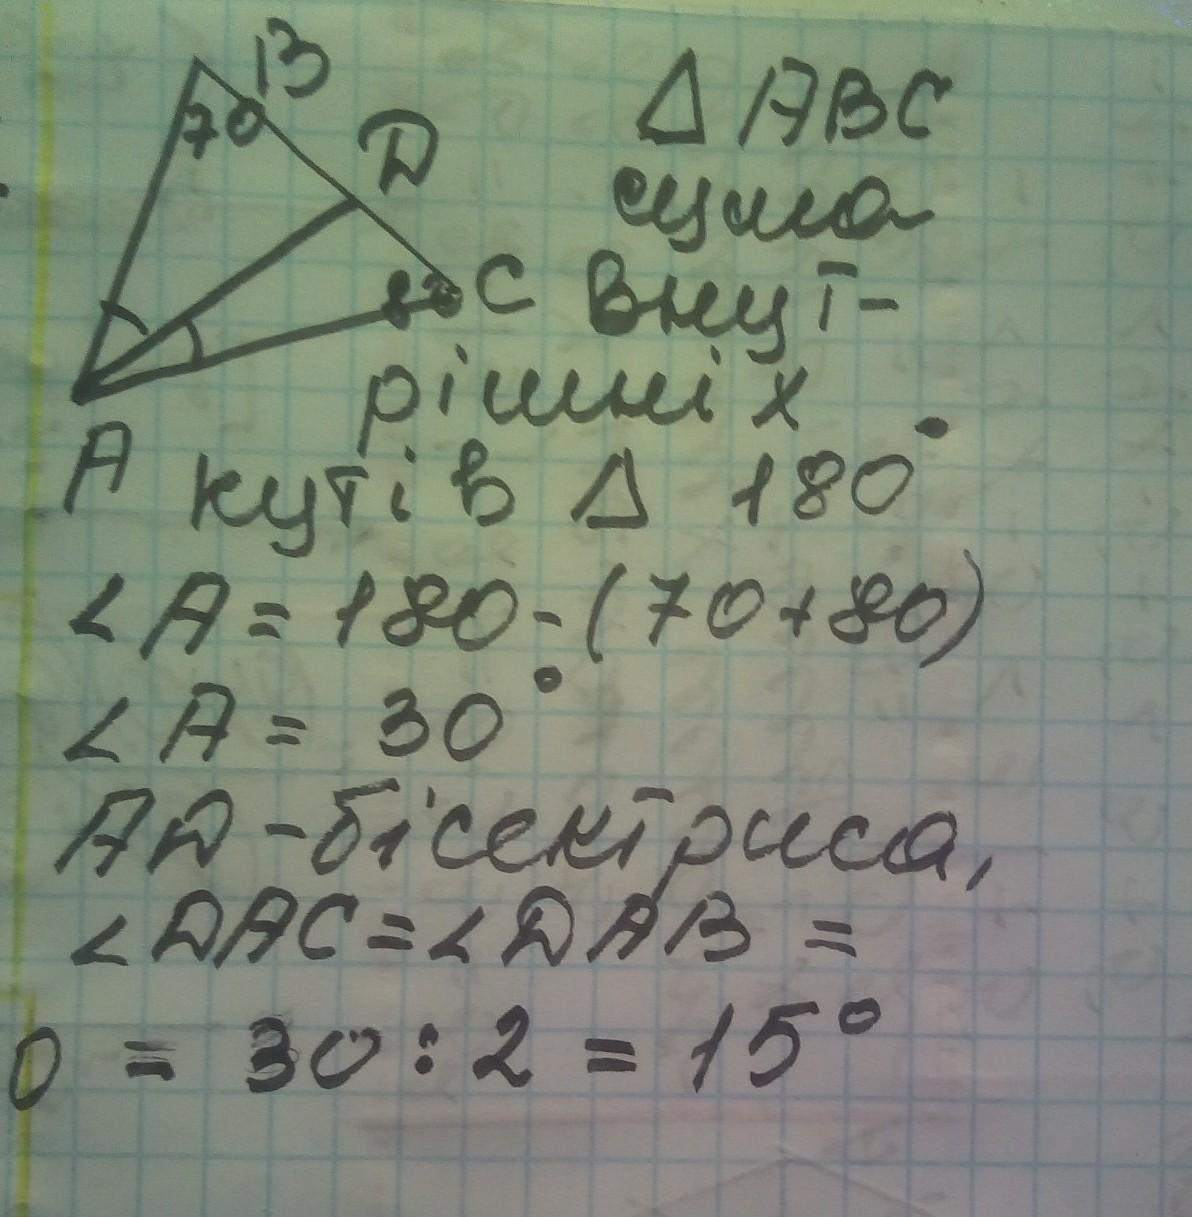 B
70
D
80 C
A
Δ ABC
сума
внут-
рішніх
кутів Δ 180°
∠A = 180 - (70+80)
∠A = 30°
AD - бісектриса,
∠DAC = ∠DAB =
0 = 30 : 2 = 15°